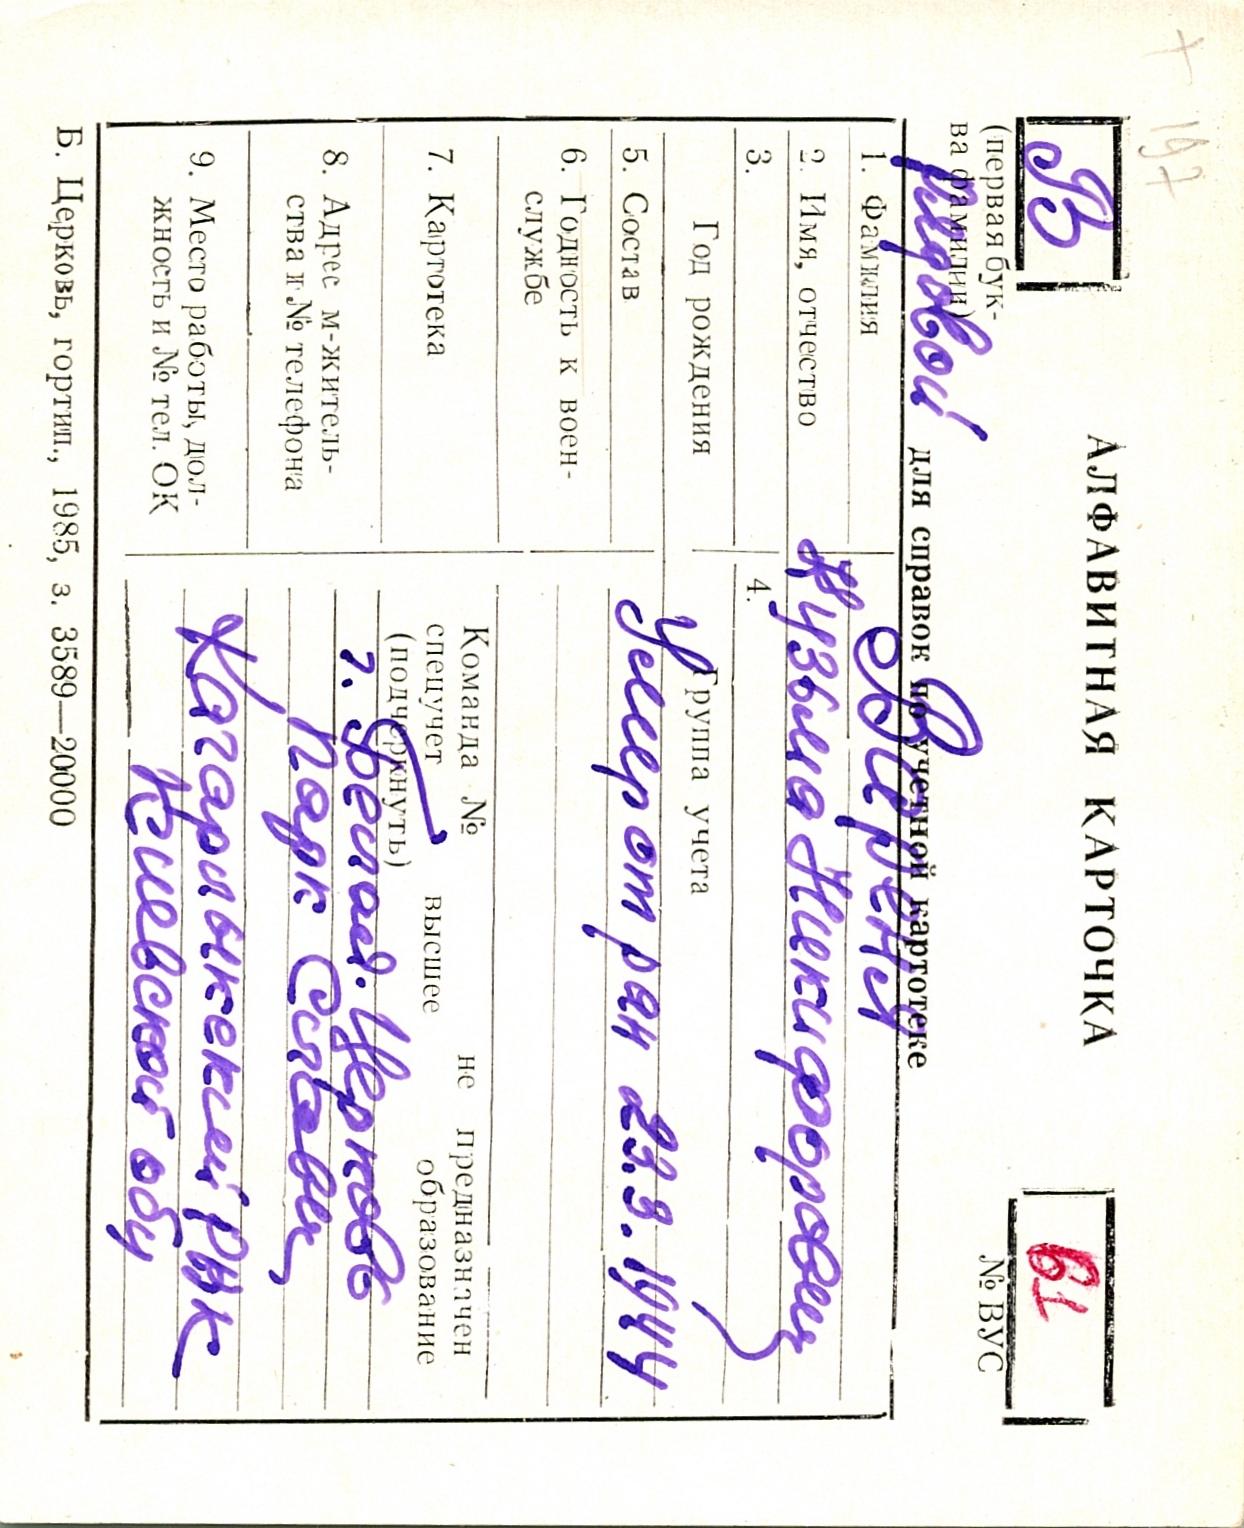 + 197
В
АЛФАВИТНАЯ КАРТОЧКА
В1
(первая бук-
ва фамилии)
рядовой
для справок по учетной картотеке
№ ВУС
1. Фамилия
2. Имя, отчество
Кузьма Никифорович
3.
Год рождения
4.
Группа учета
5. Состав
Умер от ран 23.3.1944
6. Годность к воен-
службе
7. Картотека
Команда №
не предназначен
спецучет
высшее
образование
(подчеркнуть)
8. Адрес м-житель-
ства и № телефона
г. Белая-Церковь
Парк Славы
9. Место работы, дол-
жность и № тел. ОК
Кагарлыкский РВК
Киевской обл
Б. Церковь, гортип., 1985, з. 3589—20000